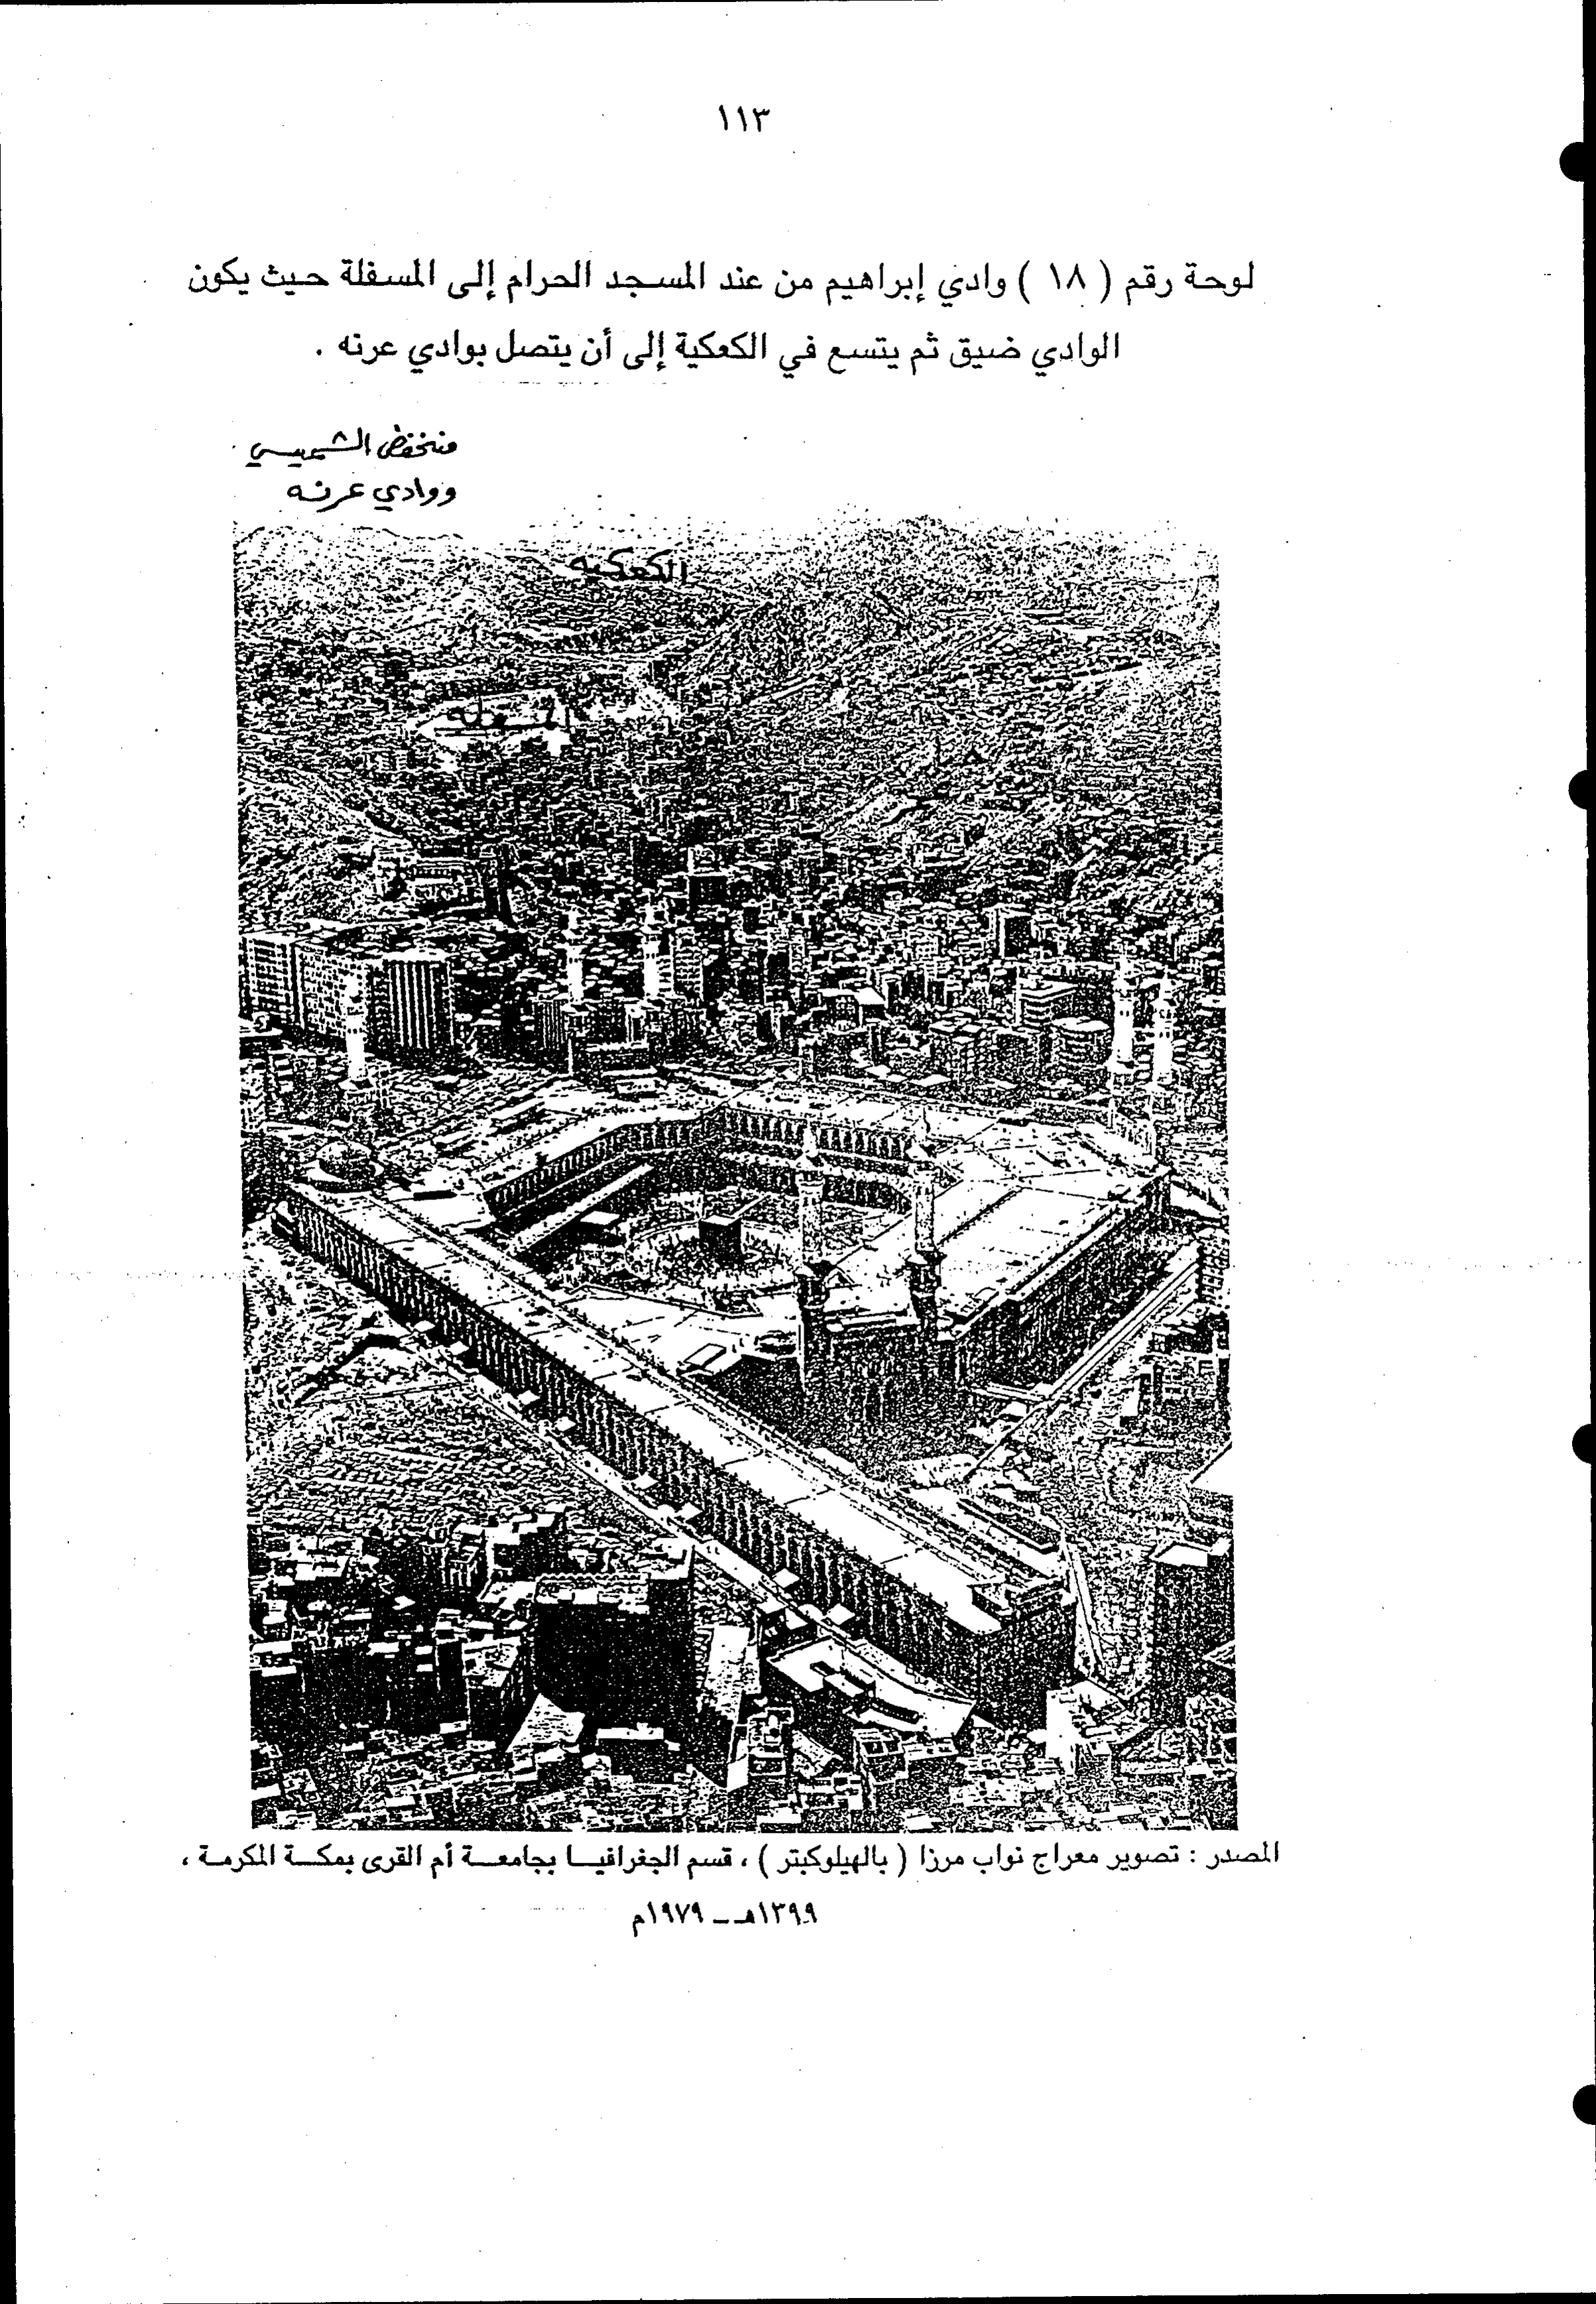 ١١٣
لوحة رقم ( ١٨ ) وادي إبراهيم من عند المسجد الحرام إلى المسفلة حيث يكون
الوادي ضيق ثم يتسع في الكعكية إلى أن يتصل بوادي عرنه .
منخفض الشميسي
ووادي عرنه
الكعكيه
المسفله
المصدر : تصوير معراج نواب مرزا ( بالهيلوكبتر ) ، قسم الجغرافيا بجامعة أم القرى بمكة المكرمة ،
١٣٩٩هـ ــ ١٩٧٩م